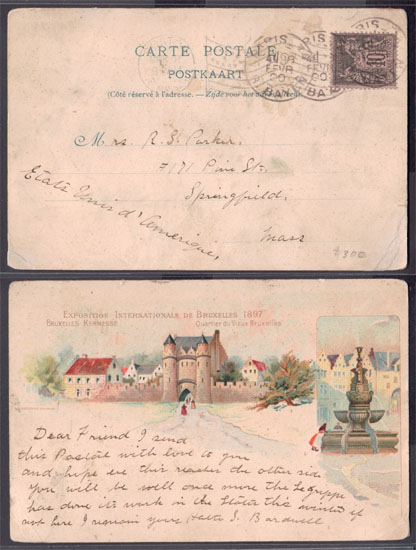 CARTE POSTALE
POSTKAART
(Côté réservé à l'adresse. – Zijde voor het adres
PARIS
PARIS
FEVR
FEVR
00
00
10
Mrs. R. S. Parker.
Pine St.
Springfield,
Mass
Etats Unis d'Amerique,
$300
EXPOSITION INTERNATIONALE DE BRUXELLES 1897
BRUXELLES KERMESSE
Quartier du Vieux Bruxelles
Dear Friend I send
this Postal with love to you
and hope ere this reaches the other side
you will be well once more the grippe
has done its work in the States this winter if
not here I remain yours, I. Bardwell